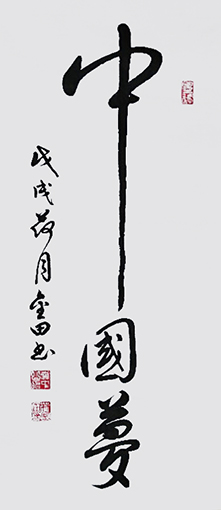 中國夢
戊戌荷月金田书